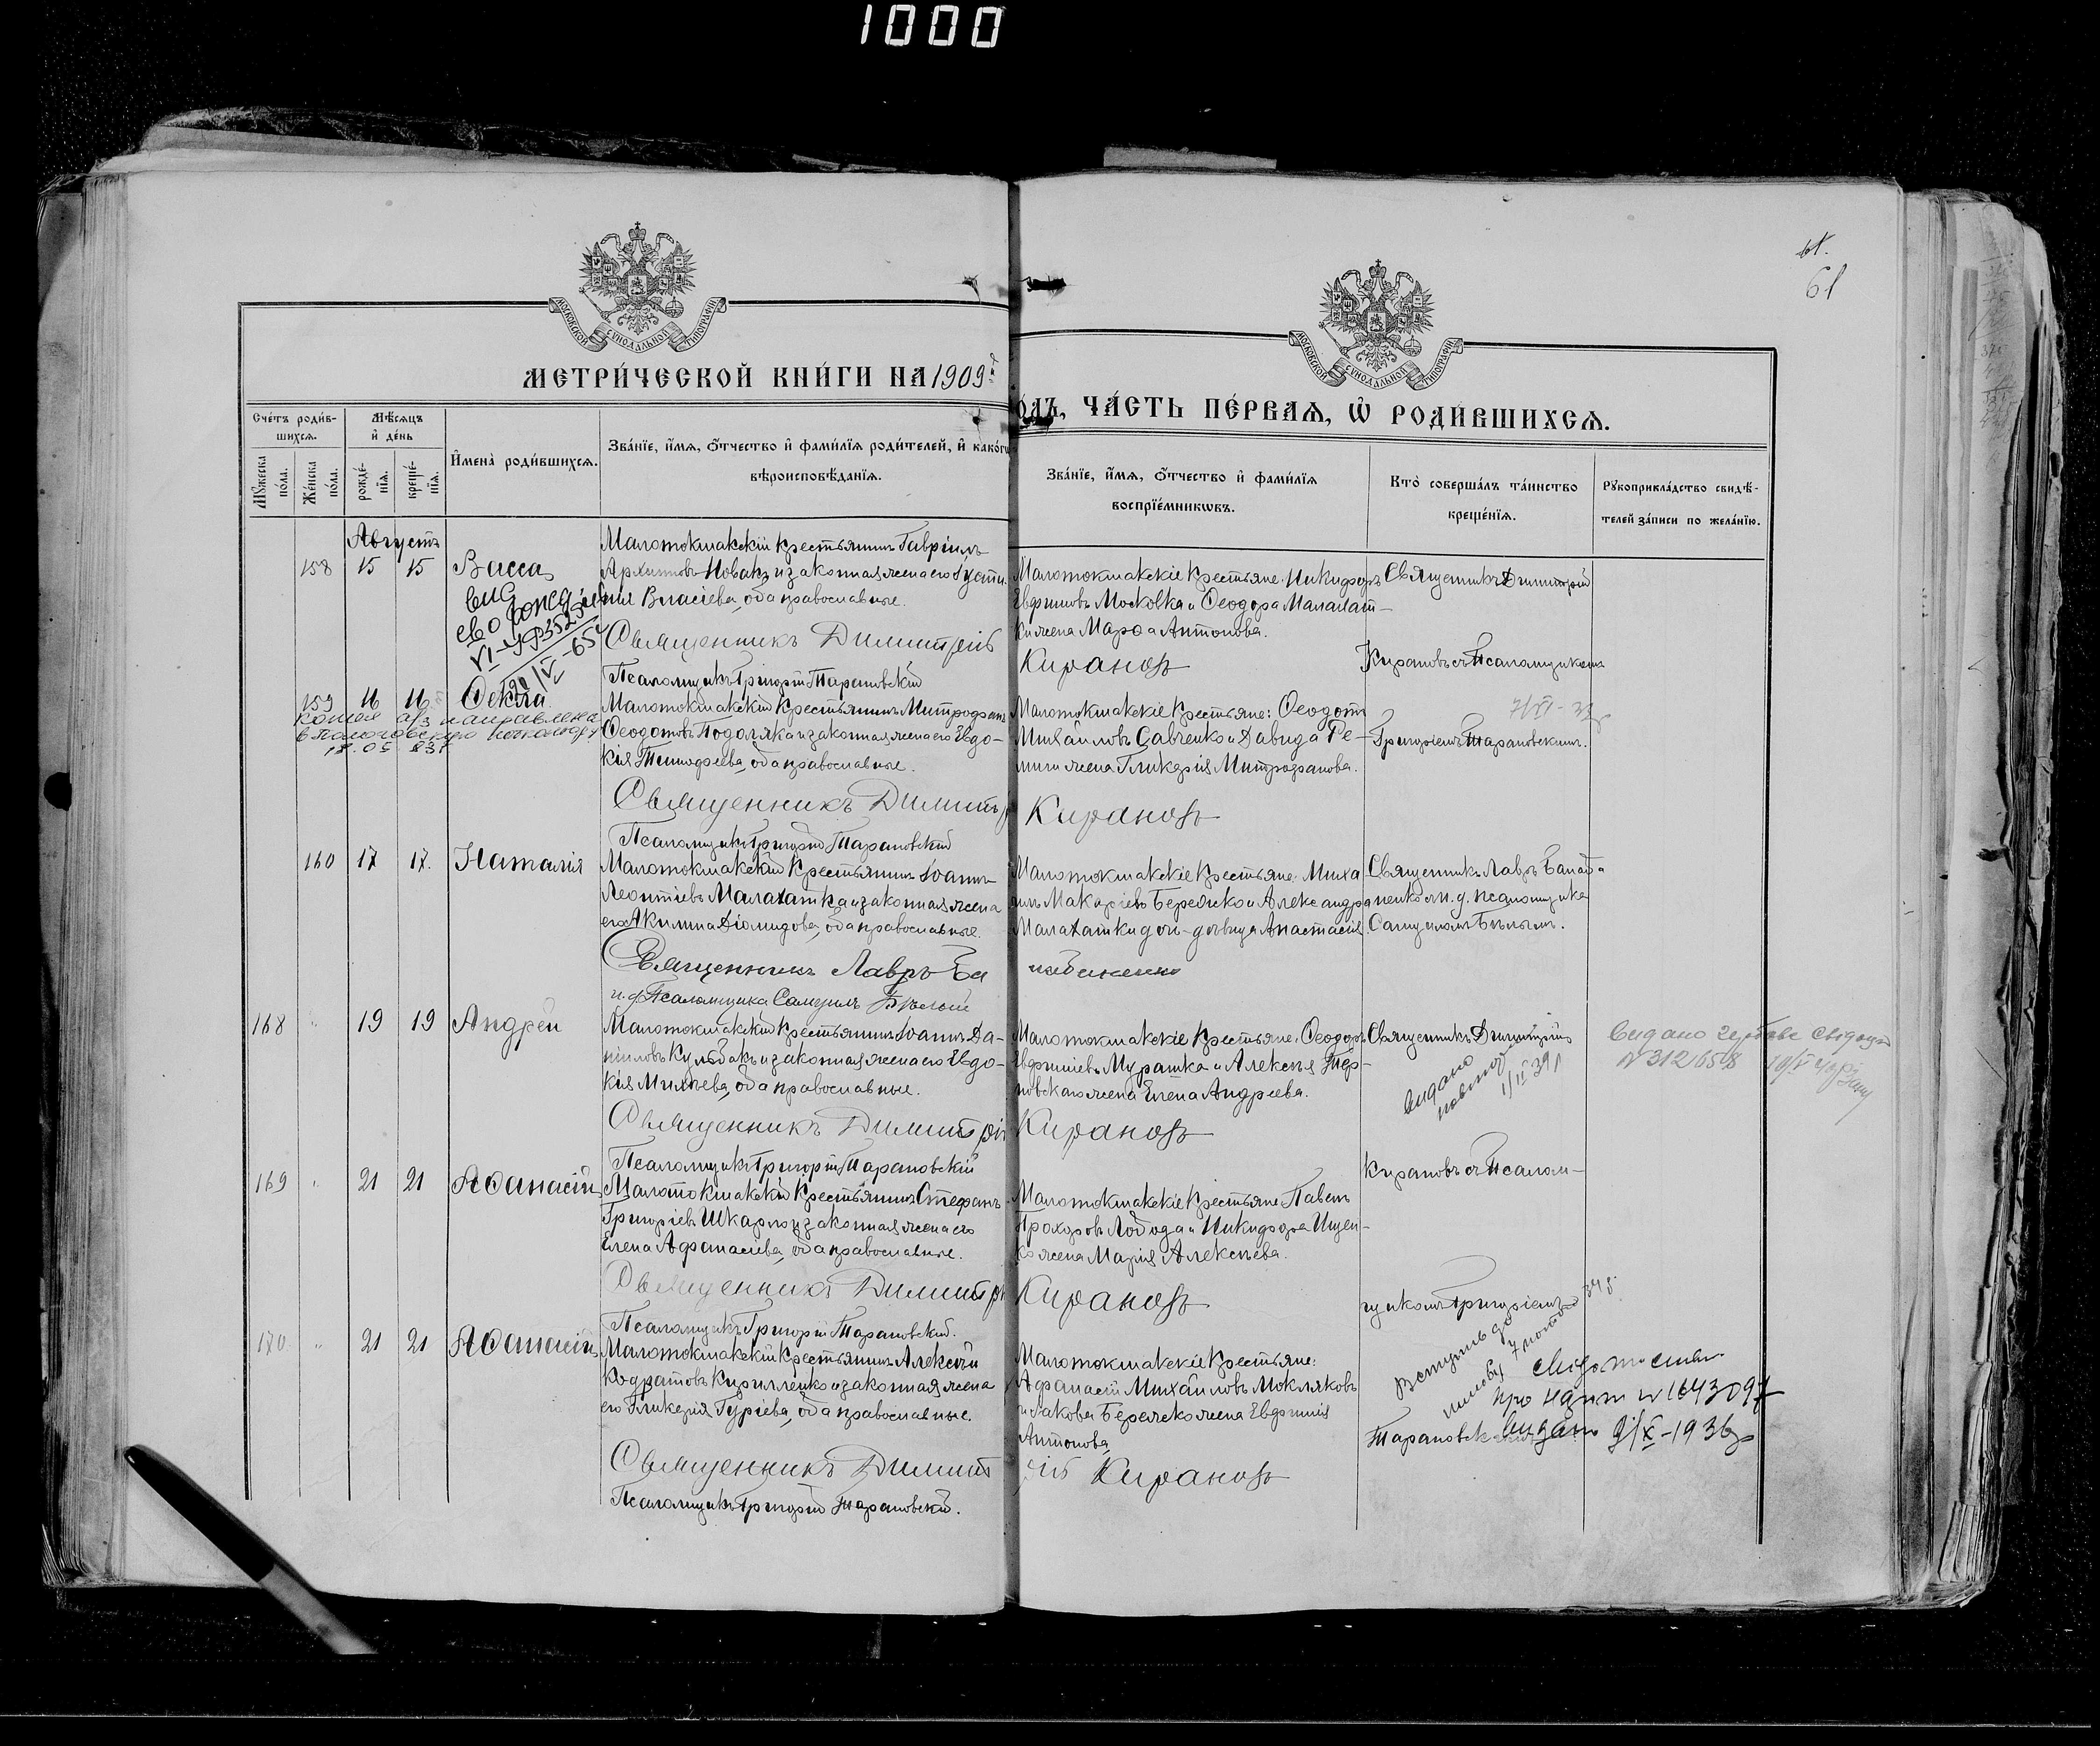 1000
61.
61
МОСКОВСКОЙ СѴНОДАЛЬНОЙ ТИПОГРАФІИ
МОСКОВСКОЙ СѴНОДАЛЬНОЙ ТИПОГРАФІИ
МЕТРИ́ЧЕСКОЙ КНИ́ГИ НА 1909 г
ОДЪ, ЧА́СТЬ ПЕ́РВАѦ, Ѡ҆ РОДИ́ВШИХСѦ.
Сче́тъ роди́в-
шихсѧ.
Мѣ́сѧцъ
и҆ де́нь
Мꙋ́жеска
по́ла.
Же́нска
по́ла.
рожде́-
нїѧ.
креще́-
нїѧ.
И҆мена̀ роди́вшихсѧ.
Зва́нїе, и҆́мѧ, ѻ҆́тчество и҆ фами́лїѧ роди́телей, и҆ како́гѡ
вѣроисповѣ́данїѧ.
Зва́нїе, и҆́мѧ, ѻ҆́тчество и҆ фами́лїѧ
воспрїе́мникѡвъ.
Кто̀ соверша́лъ та́инство
креще́нїѧ.
Рꙋкоприкла́дство свидѣ́-
телей за́писи по жела́нїю.
Августъ
158 15 15 Васса
Малотокмакскій крестьянинъ Гавріилъ
Архиповъ Новакъ и законная жена его Іусти-
нія Власіева, оба православные.
Священникъ Димитрій
Псаломщикъ Григорій Тарановскій
Малотокмакскіе крестьяне: Никифоръ
Евфимовъ Московка и Ѳеодора Малахат-
ки жена Марѳа Антонова.
Кирановъ
Священникъ Димитрій
Кирановъ съ Псаломщикомъ
159 16 16 Ѳекла
18.05 83г
Малотокмакскій крестьянинъ Митрофанъ
Ѳеодотовъ Подоляка и законная жена его Евдо-
кія Тимофеева, оба православные.
Священникъ Димитр
Псаломщикъ Григорій Тарановскій
Малотокмакскіе крестьяне: Ѳеодотъ
Михаиловъ Савченко и Давида Ре-
мыги жена Гликерія Митрофанова.
Кирановъ
Григоріемъ Тарановскимъ.
160 17 17. Наталія
Малотокмакскій крестьянинъ Іоаннъ
Леонтіевъ Малахатка и законная жена
его Акилина Діомидова, оба православные.
Священникъ Лавръ Ба
и. д. Псаломщика Самуилъ Бѣлый
Малотокмакскіе крестьяне: Миха
илъ Макаріевъ Бережко и Александра
Малахатки дочь-дѣвица Анастасія.
Священникъ Лавръ
и. д. псаломщика
Самуиломъ Бѣлымъ.
168 " 19 19 Андрей
Малотокмакскій крестьянинъ Іоаннъ Да-
ніиловъ Кульбакъ и законная жена его Евдо-
кія Минѣева, оба православные.
Священникъ Димитрій
Псаломщикъ Григорій Тарановскій
Малотокмакскіе крестьяне: Ѳеодоръ
Евфиміевъ Мурашка и Алексѣя Тер-
новскаго жена Елена Андреева.
Кирановъ
Священникъ Димитрій
видано
Кирановъ съ Псалом-
169 " 21 21 Аѳанасій
Малотокмакскій крестьянинъ Стефанъ
Григоріевъ Шкарло и законная жена его
Елена Афанасіева, оба православные.
Священникъ Димитрі
Псаломщикъ Григорій Тарановскій.
Малотокмакскіе крестьяне: Павелъ
Прохоровъ Лобода и Никифора Ищен-
ко жена Марія Алексѣева.
Кирановъ
щикомъ Григоріемъ
170 " 21 21 Аѳанасій
Малотокмакскій крестьянинъ Алексѣй
Кодратовъ Кирилленко и законная жена
его Гликерія Гуріева, оба православные.
Священникъ Димит
Псаломщикъ Григорій Тарановскій.
Малотокмакскіе крестьяне:
Афанасій Михаиловъ Мокляковъ
и Іакова Бережко жена Евфимія
Антонова,
рій Кирановъ
Тарановск
N 1643097
видано 9/X-1936р